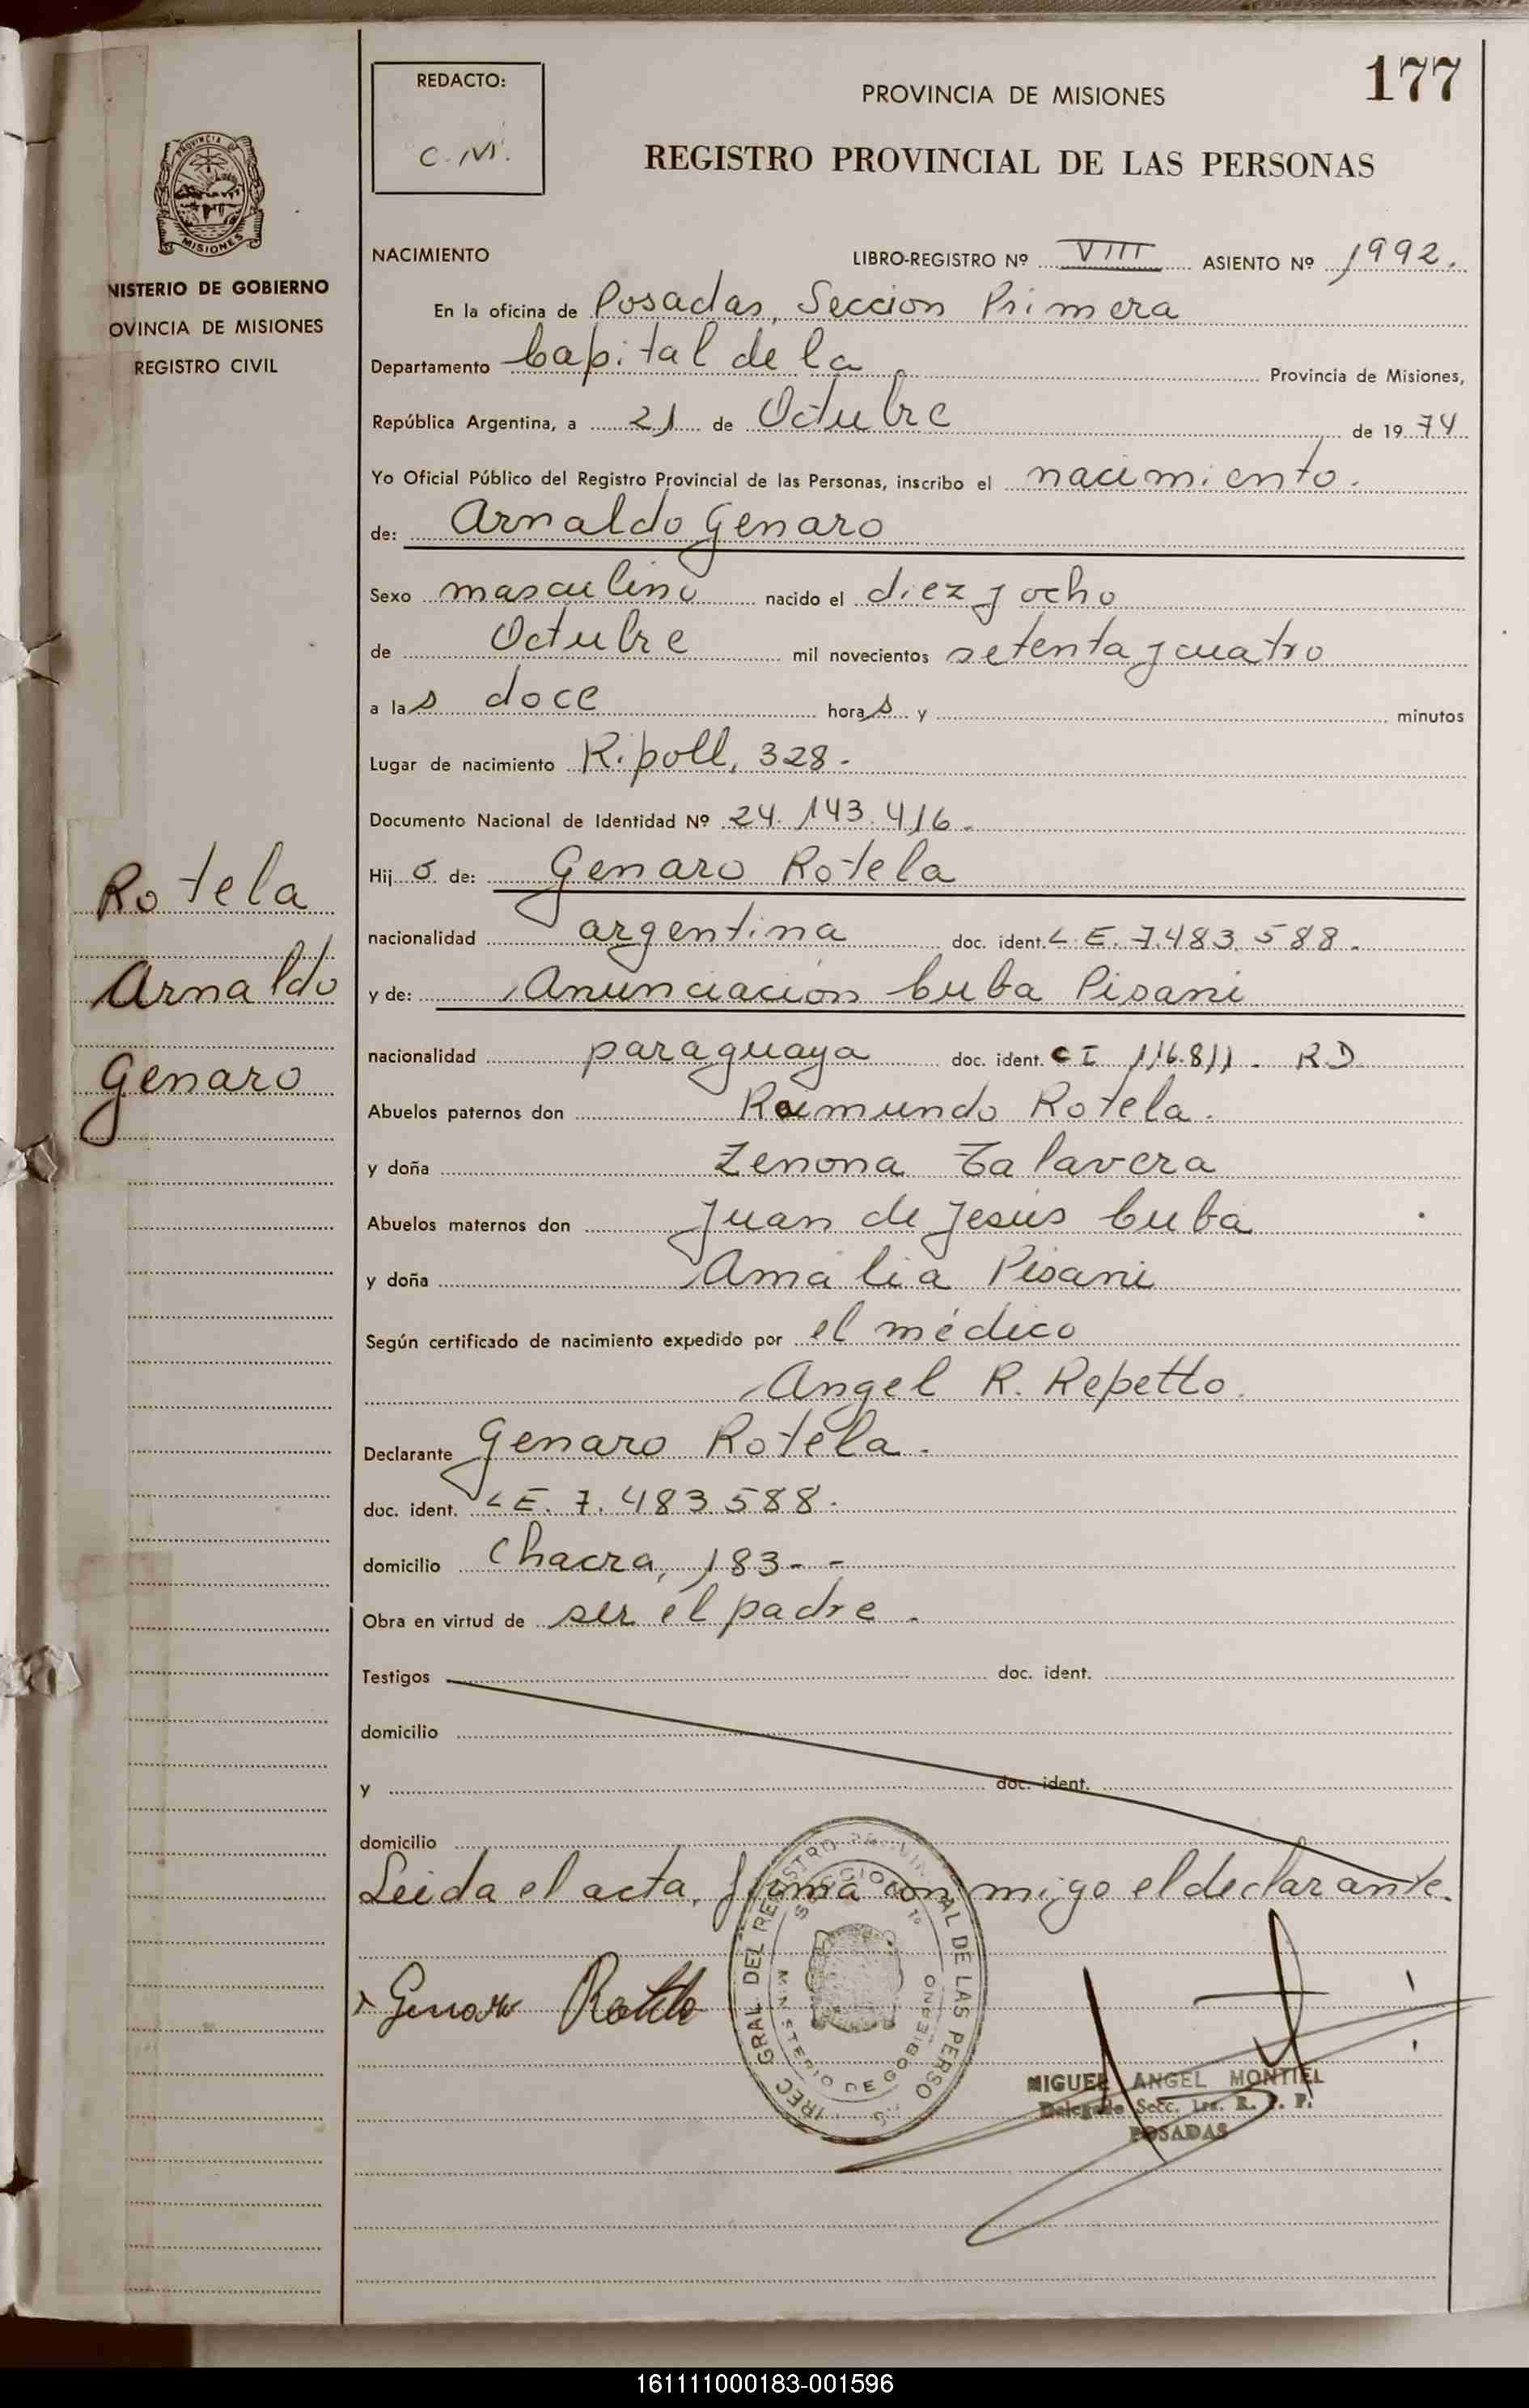 177
REDACTO:
C. M.
PROVINCIA DE MISIONES
REGISTRO PROVINCIAL DE LAS PERSONAS
PROVINCIA DE
MISIONES
NISTERIO DE GOBIERNO
OVINCIA DE MISIONES
REGISTRO CIVIL
NACIMIENTO LIBRO-REGISTRO Nº VIII ASIENTO Nº 1992.
En la oficina de Posadas, Seccion Primera
Departamento Capital de la Provincia de Misiones,
República Argentina, a 21 de Octubre de 1974
Yo Oficial Público del Registro Provincial de las Personas, inscribo el nacimiento.
de: Arnaldo Genaro
Sexo masculino nacido el diez y ocho
de Octubre mil novecientos setenta y cuatro
a las doce horas y minutos
Lugar de nacimiento Ripoll, 328.
Documento Nacional de Identidad Nº 24.143.416.
Hijo de: Genaro Rotela
nacionalidad argentina doc. ident. L.E. 7.483.588.
y de: Anunciación Cuba Pisani
nacionalidad paraguaya doc. ident. C I 116.811. R.D.
Abuelos paternos don Raimundo Rotela.
y doña Zenona Talavera
Abuelos maternos don Juan de Jesús Cuba
y doña Amalia Pisani
Según certificado de nacimiento expedido por el médico
Angel R. Repetto.
Declarante Genaro Rotela.
doc. ident. L E. 7.483.588.
domicilio Chacra, 183--
Obra en virtud de ser el padre.
Testigos doc. ident.
domicilio
y doc. ident.
domicilio
Leida el acta, firma conmigo el declarante.
Rotela
Arnaldo
Genaro
Genaro Rotela
GRAL DEL REGISTRO PROVINCIAL DE LAS PERSO
SECCION 1º
MINISTERIO DE GOBIERNO
MIGUEL ANGEL MONTIEL
Delegado Secc. 1ra. R. P. P.
POSADAS
161111000183-001596